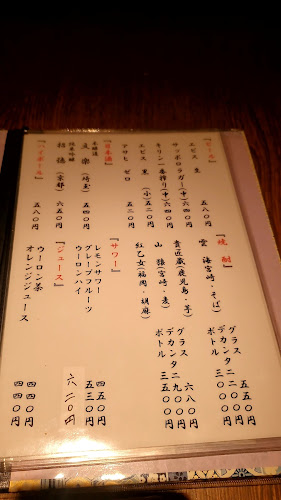 『ビール』
エビス 生 五八〇円
サッポロラガー(中)六四〇円
キリン一番搾り(中)六四〇円
エビス 黒 (小)五二〇円
アサヒ ゼロ 五二〇円
『日本酒』
本醸造
文楽 (埼玉) 五四〇円
純米吟醸
招徳 (京都) 六五〇円
『ハイボール』 五八〇円
『焼酎』
雲海(宮崎・そば)
グラス 五五〇円
デカンタ 二二〇〇円
ボトル 三〇〇〇円
貴匠蔵(鹿児島・芋)
山猿(宮崎・麦)
紅乙女(福岡・胡麻)
グラス 六八〇円
デカンタ 二九〇〇円
ボトル 三五〇〇円
『サワー』
レモンサワー
グレープフルーツ
ウーロンハイ 五三〇円
六二〇円
『ジュース』
ウーロン茶 四四〇円
オレンジジュース 四四〇円